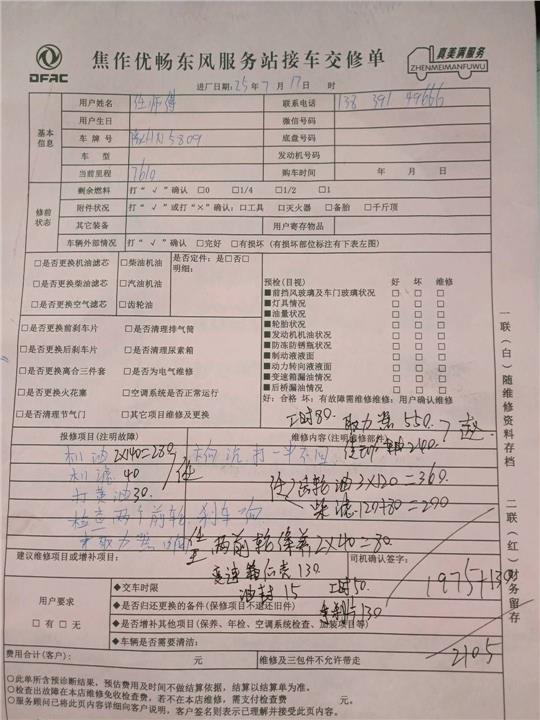 DFAC
焦作优畅东风服务站接车交修单
真美满服务
ZHENMEIMANFUWU
进厂日期：25年7月17日 时
基本信息
用户姓名 任师傅 联系电话 138 391 49666
用户生日 微信号码
车牌号 底盘号码
车型 发动机号码
当前里程 7610 购车时间 年 月 日
修前状态
剩余燃料 打“√”确认 □0 □1/4 □1/2 □1
附件状况 打“√”或打“×”确认：□工具 □灭火器 □备胎 □千斤顶
其它装备 用户寄存物品
车辆外部情况 打“√”确认 □完好 □有损坏（有损坏部位标注有下表左图）
□是否更换机油滤芯 □柴油机油 是否定件：是□否□
明细：
□是否更换柴油滤芯 □汽油机油
□是否更换空气滤芯 □齿轮油
预检(目视) 好 坏 维修
■前挡风玻璃及车门玻璃状况 □ □ □
■灯具情况 □ □ □
■油量状况 □ □ □
■轮胎状况 □ □ □
■发动机机油状况 □ □ □
■防冻防锈瓶状况 □ □ □
■制动液液面 □ □ □
■动力转向液液面 □ □ □
■变速箱漏油情况 □ □ □
■后桥漏油情况 □ □ □
好：合格 坏：有故障需维修维修：用户确认维修
□是否更换前刹车片 □是否清理排气筒
□是否更换后刹车片 □是否清理尿素箱
□是否更换离合三件套 □是否为电气维修
□是否更换火花塞 □空调系统是否正常运行
□是否清理节气门 □其它项目维修及更换
工时80. 取力器 550.
240.
报修项目(注明故障) 维修内容(注明维修部件)
机油 2×140=280
机滤 40
打黄油 30.
齿轮油 3×120=360
柴滤 120+80=200
检查两个前轮刹车
两前轮 2×40=80.
建议维修项目或增补项目： 司机确认签字：
变速箱 130.
油封 15 工时50.
130
1975+130
2105
用户要求
□有 □无
◆交车时限
◆是否归还更换的备件(保修项目不退还旧件)
◆是否增补其他项目(保养、年检、空调系统检查、加装项目等)
◆车辆是否需要清洁：
费用合计(客户)： 元 维修及三包件不允许带走
○此单所含预诊断结果、预估费用及时间不做结算依据，结算以结算单为准。
○检查出故障在本店维修免收检查费，若不在本店维修，需支付检查费 元。
○服务顾问已将此页内容详细向客户说明，客户签名则表示已理解并接受此页内容。
一联(白)随维修资料存档
二联(红)财务留存